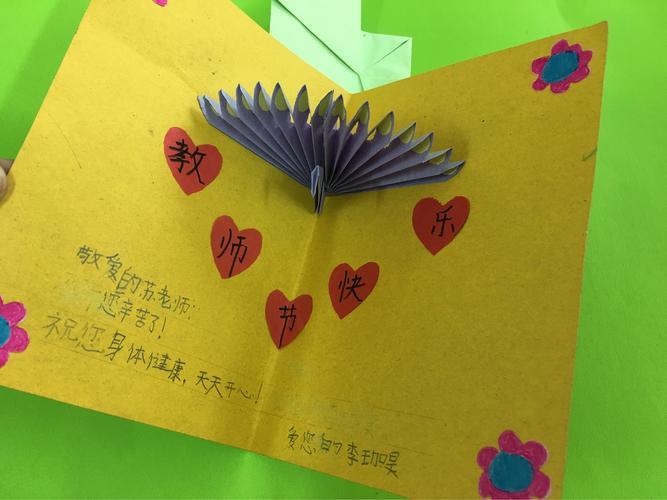 教师节快乐
敬爱的苏老师：
您辛苦了！
祝您身体健康，天天开心！
爱您的李珈昊